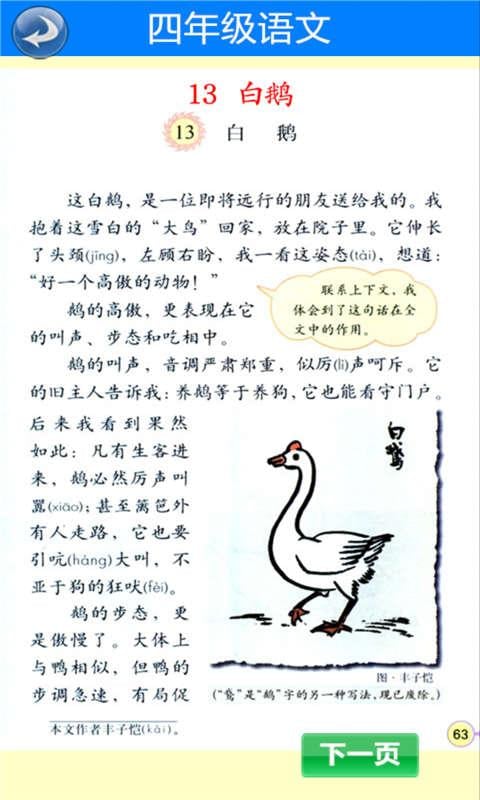 四年级语文
13 白鹅
13 白 鹅
这白鹅，是一位即将远行的朋友送给我的。我
抱着这雪白的“大鸟”回家，放在院子里。它伸长
了头颈(jǐng)，左顾右盼，我一看这姿态(tài)，想道：
“好一个高傲的动物！”
联系上下文，我
体会到了这句话在全
文中的作用。
鹅的高傲，更表现在它
的叫声、步态和吃相中。
鹅的叫声，音调严肃郑重，似厉(lì)声呵斥。它
的旧主人告诉我：养鹅等于养狗，它也能看守门户。
后来我看到果然
如此：凡有生客进
来，鹅必然厉声叫
嚣(xiāo)；甚至篱笆外
有人走路，它也要
引吭(háng)大叫，不
亚于狗的狂吠(fèi)。
鹅的步态，更
是傲慢了。大体上
与鸭相似，但鸭的
步调急速，有局促
白鵞
图·丰子恺
(“鵞”是“鹅”字的另一种写法，现已废除。)
本文作者丰子恺(kǎi)。
63
下一页